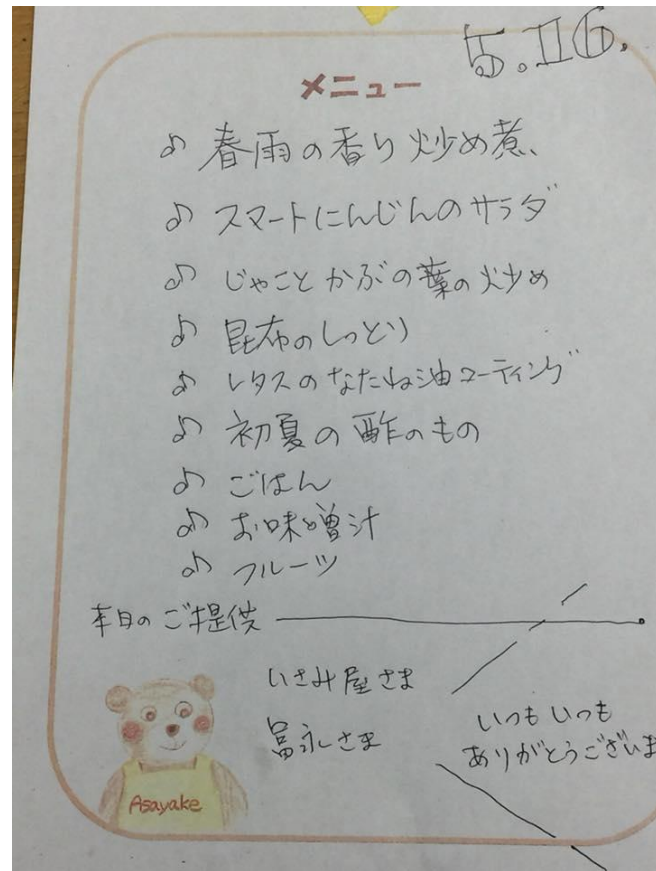 5.16.
メニュー
♪ 春雨の香り炒め煮
♪ スマートにんじんのサラダ
♪ じゃことかぶの葉の炒め
♪ 昆布のしっとり
♪ レタスのなたね油コーティング
♪ 初夏の酢のもの
♪ ごはん
♪ お味噌汁
♪ フルーツ
本日のご提供
いさみ屋さま
冨永さま
いつもいつも
ありがとうございま
Asayake